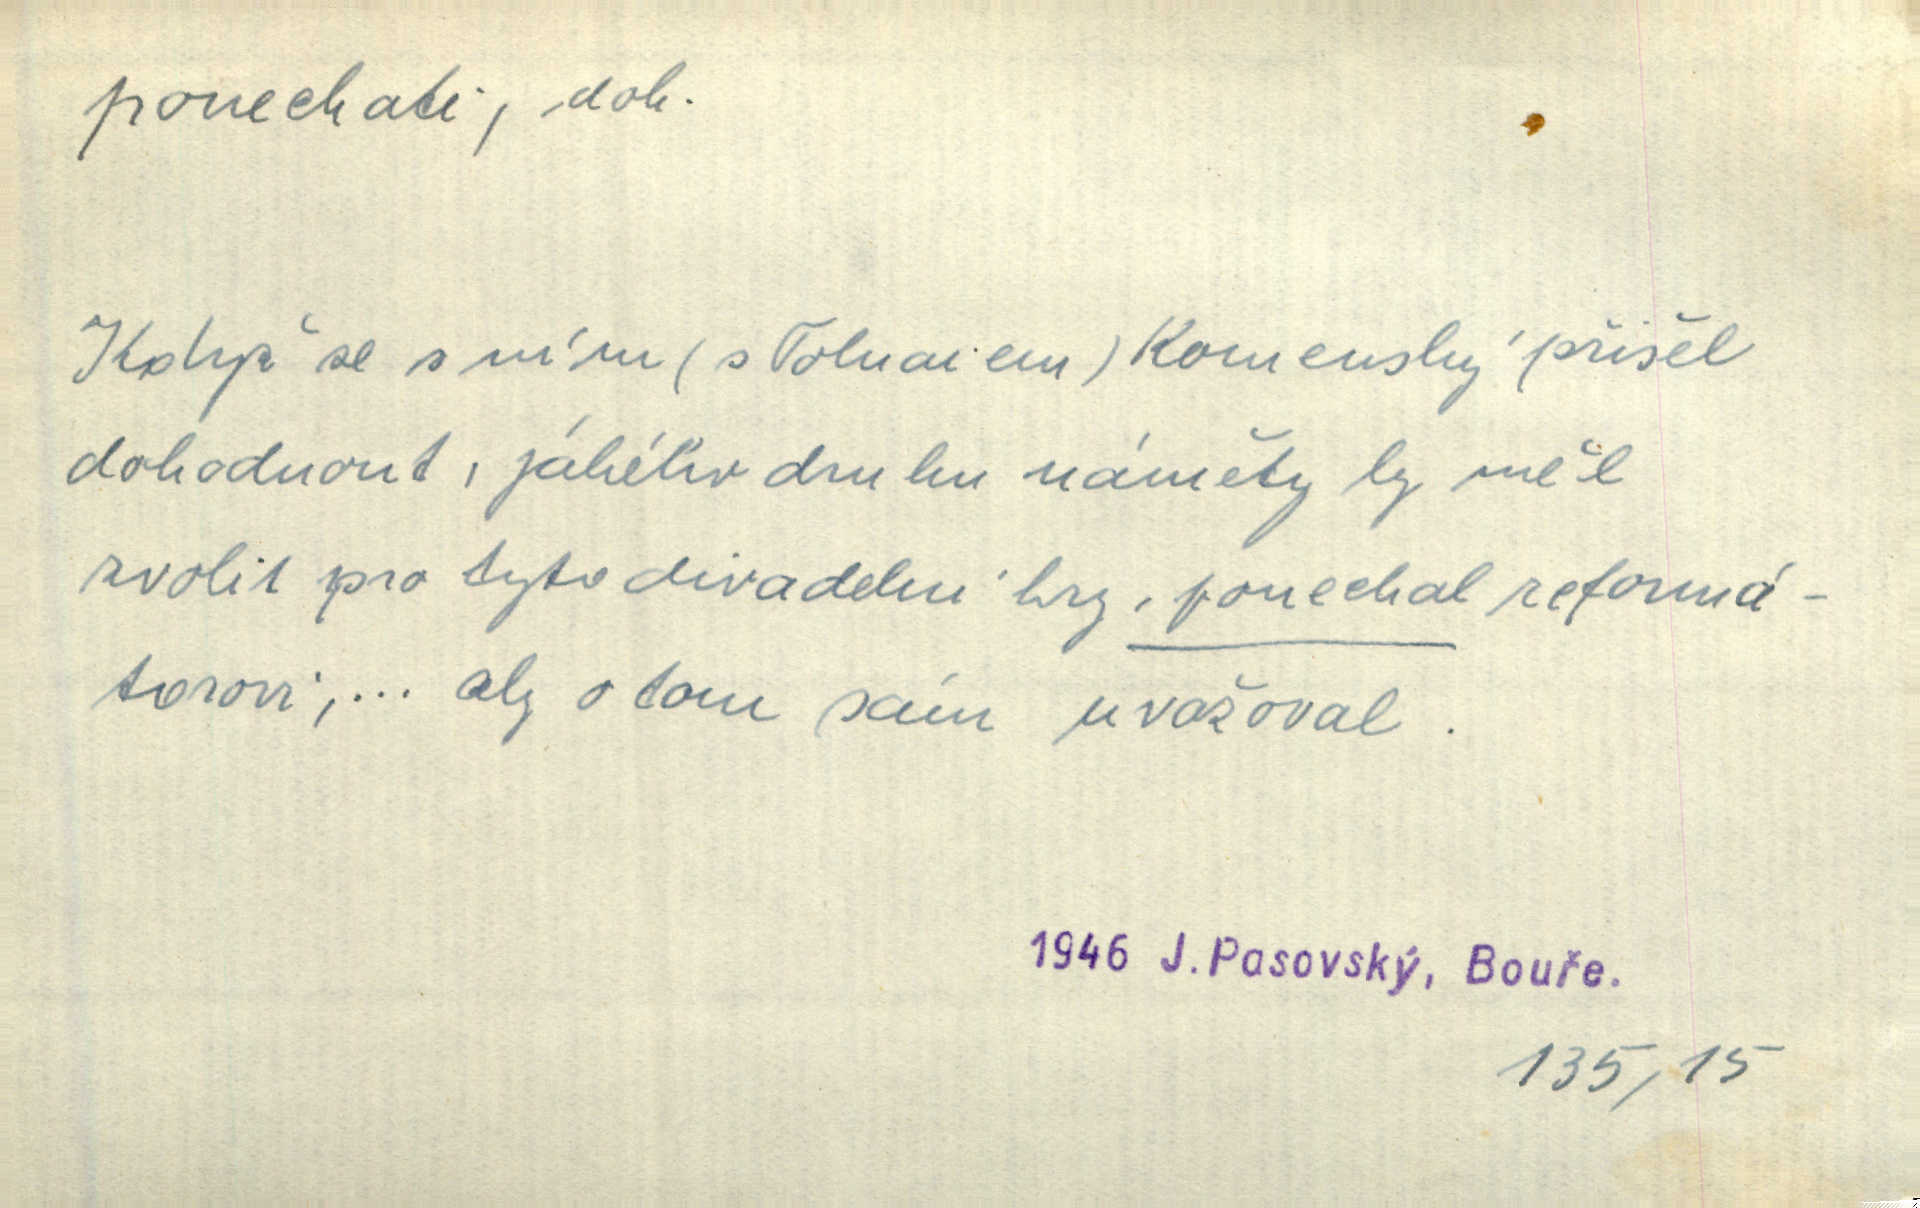 ponechati, dok.
Když se s ním (s Tolnaiem) Komenský přišel
dohodnout, jakého druhu náměty by měl
zvolit pro tyto divadelní hry, ponechal reformá-
torovi,... aby o tom sám uvažoval.
1946 J. Pasovský, Bouře.
135, 15